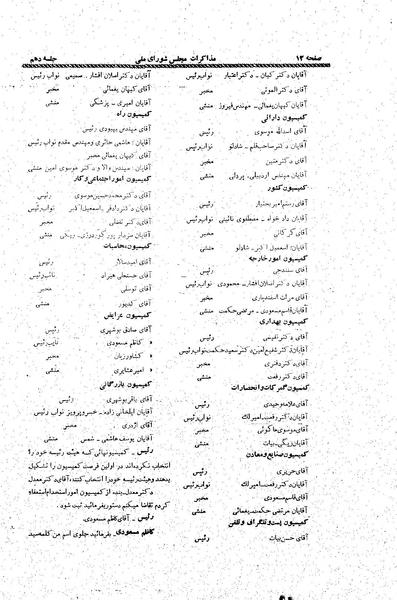 صفحه ۱۲
مذاکرات مجلس شورای ملی
جلسه دهم
آقایان دکتر کیان - دکتر اعتبار نواب رئیس
آقای دکتر الموتی مخبر
آقایان کیهان یغمائی - مهندس فیروز منشی
کمیسیون دارائی
آقای اسدالله موسوی رئیس
آقایان دکتر صاحب‌قلم - شادلو نواب رئیس
آقای دکتر متین مخبر
آقایان مهندس اردبیلی، پردلی منشی
کمیسیون کشور
آقای رستم امیر بختیار رئیس
آقایان دادخواه - مصطفوی نائینی نواب رئیس
آقای گرکانی مخبر
آقایان اسمعیل شادلو منشی
کمیسیون امور خارجه
آقای سنندجی رئیس
آقایان دکتر اصلان افشار - محمودی نواب رئیس
آقای مرآت اسفندیاری مخبر
آقایان قاسم مسعودی - مرتضی حکمت منشی
کمیسیون بهداری
آقای دکتر تفضلی رئیس
آقایان دکتر شفیع امین دکتر سعید حکمت نواب رئیس
آقای دکتر دفتری مخبر
آقای دکتر رفعت منشی
کمیسیون گمرکات و انحصارات
آقای غلام وحیدی رئیس
آقایان دکتر رفعت - امیرلک نواب رئیس
آقای موسوی ماکوئی مخبر
آقایان زنگی - بیات منشی
کمیسیون صنایع و معادن
آقای حریری رئیس
آقایان دکتر رفعت - امیرلک نواب رئیس
آقای قاسم مسعودی مخبر
آقایان مرتضی حکمت - یغمائی منشی
کمیسیون پست و تلگراف و تلفن
آقای حسن بیات رئیس
آقایان دکتر اصلان افشار - صمیمی نواب رئیس
آقای کیهان یغمائی مخبر
آقایان امیری - پزشکی منشی
کمیسیون راه
آقای مهندس بهبودی رئیس
آقایان هاشمی حائری و مهندس مقدم نواب رئیس
آقای کیهان یغمائی مخبر
آقایان مهندس والا و دکتر موسوی امین منشی
کمیسیون امور اجتماعی و کار
آقای دکتر محمد حسین موسوی رئیس
آقایان دکتر دادفر - اسمعیل نواب رئیس
آقای دکتر تفضلی مخبر
آقایان سردار پور گودرزی - ریگی منشی
کمیسیون محاسبات
آقای امید سالار رئیس
آقای حسنعلی هیراد نائب رئیس
آقای توسلی مخبر
آقای کدیور منشی
کمیسیون عرایض
آقای صادق بوشهری رئیس
« کاظم مسعودی نایب رئیس
« کشاورزیان مخبر
« امیر عشایری منشی
کمیسیون بازرگانی
آقای باقر بوشهری رئیس
آقایان ایلخانی زاده - خسرو پرویز نواب رئیس
آقای اژدری مخبر
آقایان یوسف هاشمی - شمس منشی
رئیس - کمیسیونهائی که هیئت رئیسه خود را
انتخاب نکرده‌اند در اولین فرصت کمیسیون را تشکیل
بدهند وهیئت رئیسه خود را انتخاب کنند، آقای دکتر معدل
دکتر معدل - بنده از کمیسیون امور استخدام استعفا
کردم تقاضا میکنم دستور بفرمائید ثبت شود.
رئیس - آقای کاظم مسعودی.
کاظم مسعودی - بفرمائید جلوی اسم من کلمه سید